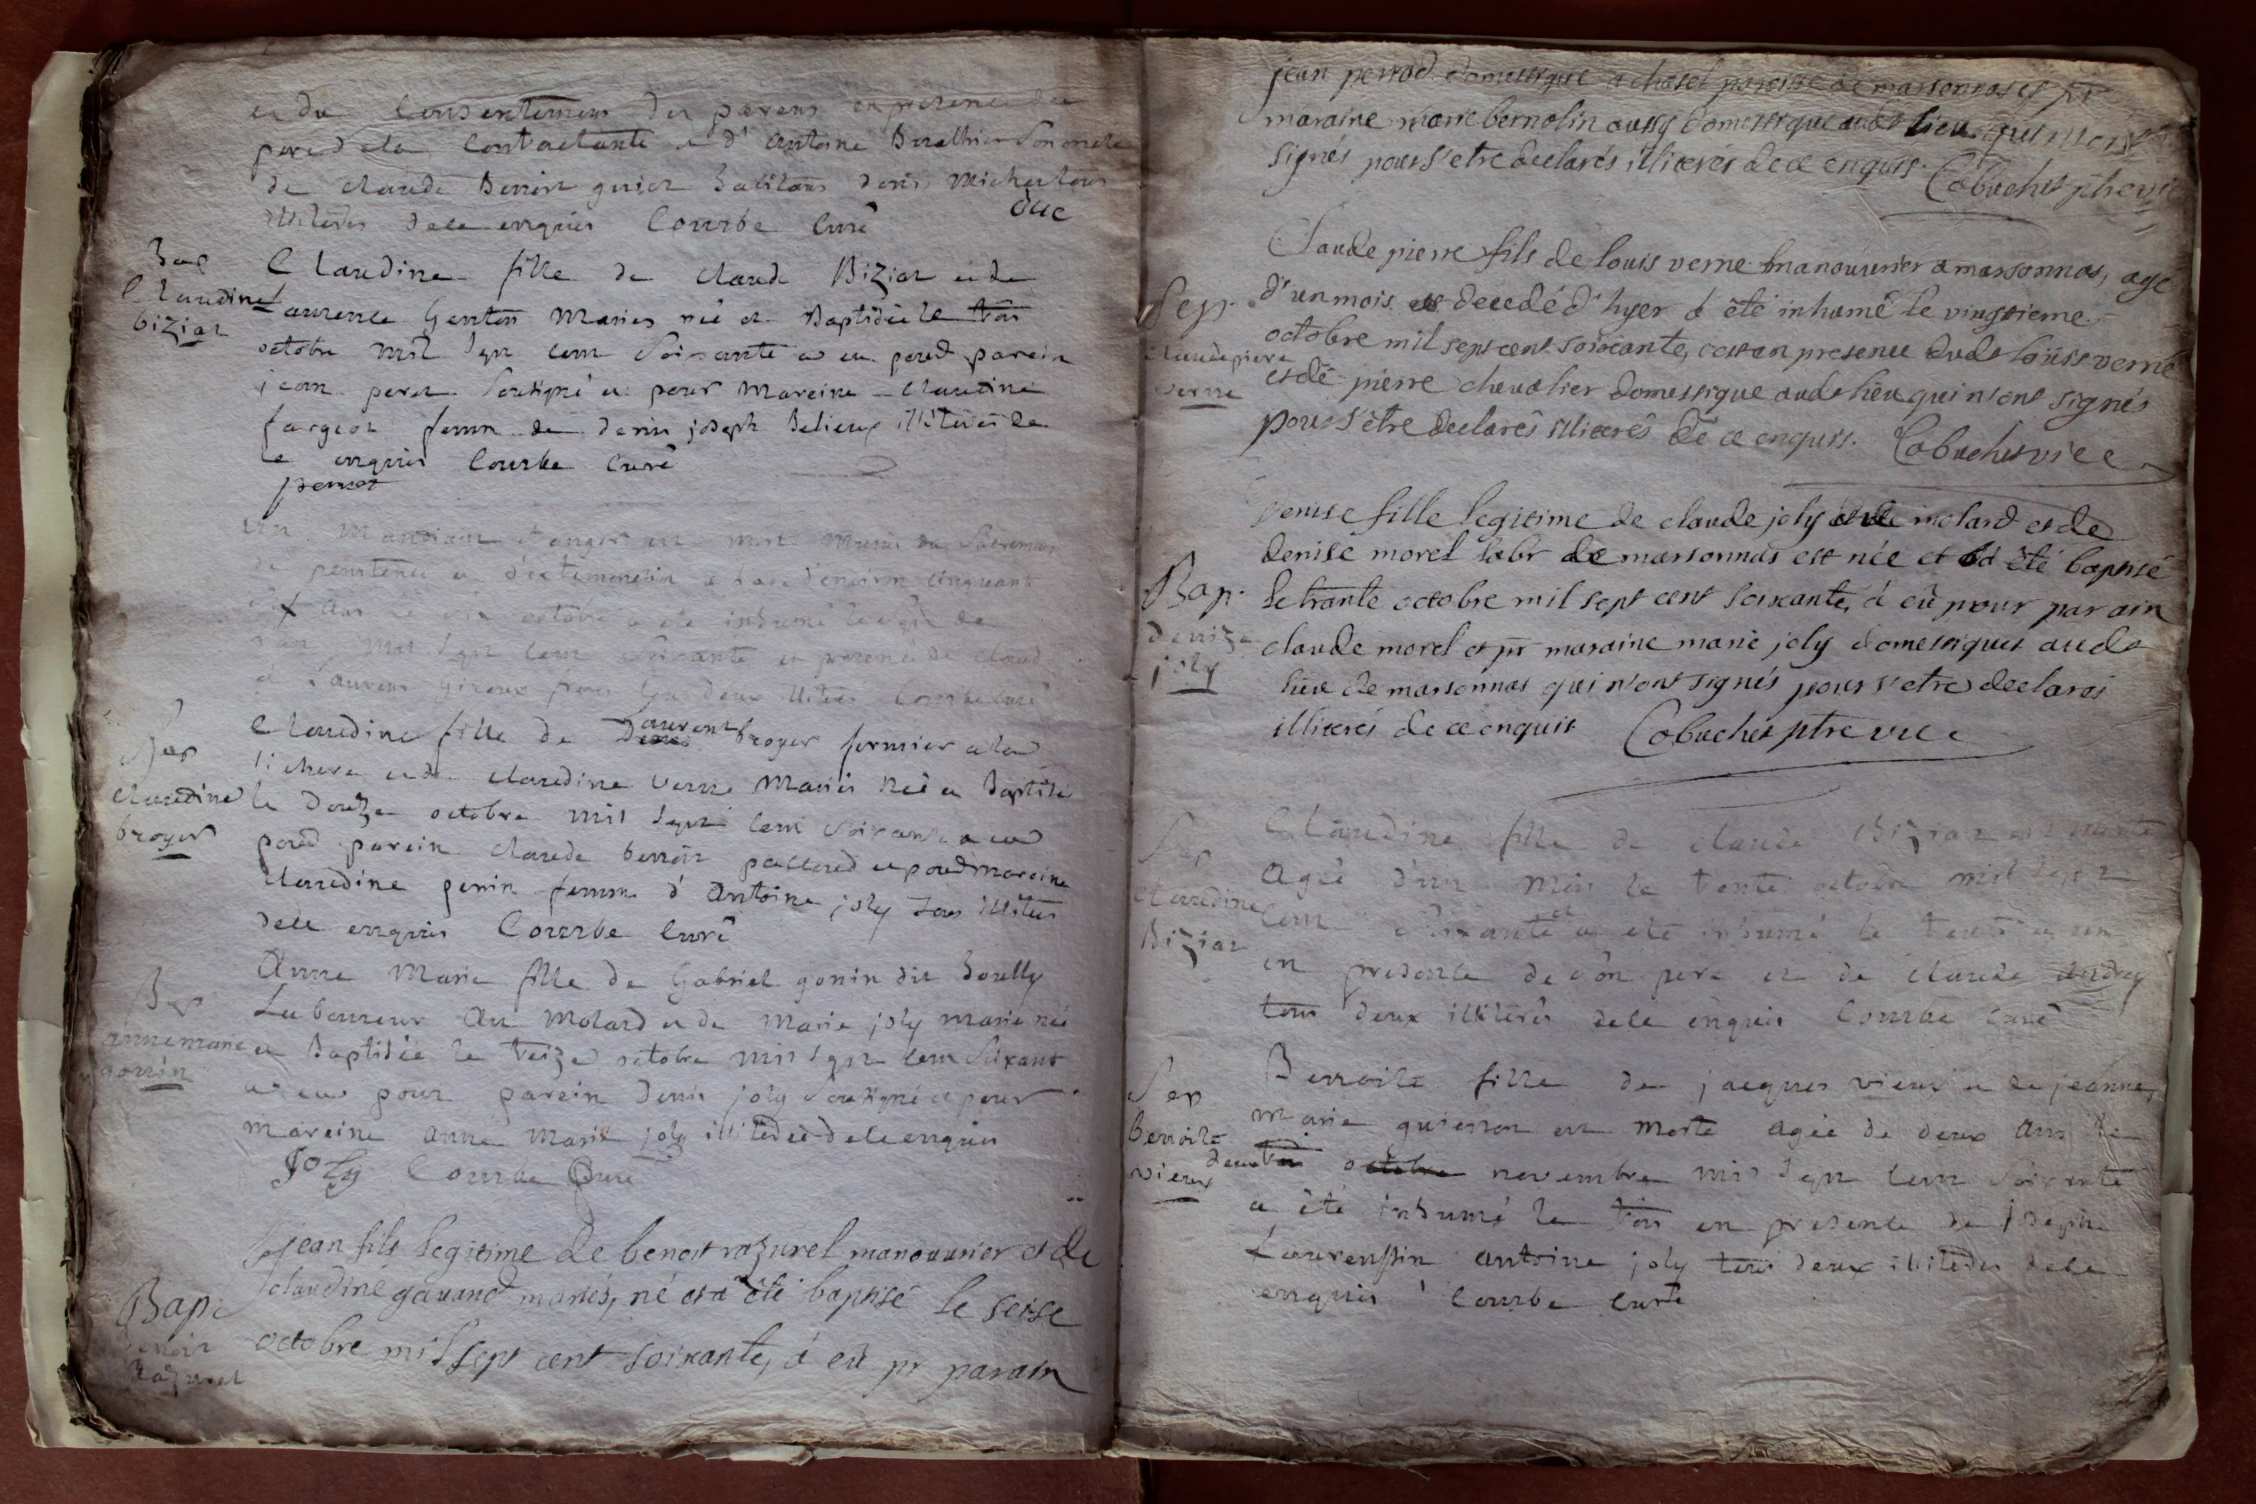 et du consentement des parens en presence du
pere dela contractante et d' antoine Son oncle
de claude Benoit habitans denis
illiteres dele enquis Courbe Curé
duc
Bap
Claudine
biziat
Claudine fille de claude Biziat et de
Laurence Genton Maries née et Baptisée le trois
octobre mil sept cent Soixante a eu pour parein
jean peret soutigné et pour Mareine Claudine
fargeot femm de denis joseph belieux illiteree de
le enquis Courbe Curé
perret
un Mandiant Etranger est mort Munis du Sacremens
de penitence et d'extremonction age d'environ cinquant
ans le octobre a été inhumé le
mil sept cent soixante en presence de Claud
et Laurens Giroux freres tous deux illiteres Courbe Curé
Bap
Claudine
broyer
Claudine fille de Laurent broyer fermier a la
lichere et de claudine verne Mariés née et Baptisée
le Douze octobre mil sept cent soixante a eu
pour parein claude benoit et pour mareine
Claudine perin femme d' antoine joly tous illiteres
dele enquis Courbe Curé
Bap
anne marie
gonin
Anne Marie fille de Gabriel gonin dit bouilly
Laboureur au Molard et de Marie joly marie née
et Baptisée le treize octobre mil sept cent Soixant
a eu pour parein denis joly soutigné et pour
mareine anne Marie joly illiteree dele enquis
Joly Courbe Curé
Bap.
benoit
Razurel
jean fils legitime de benoit razurel manouvrier et de
claudine gavand mariés, né et a été baptisé le seise
octobre mil sept cent soixante, á eû pr parain
jean perrod domestique a chasel paroisse de marsonnas et pr
maraine marie bernolin aussy domestique audt lieu qui n'ont
signés pour s'etre declarés illiterés de ce enquis. Cabuchet ptre vic
Sep.
claude pierre
verne
Claude pierre fils de louis verne manouvrier a marsonnas, agé
d'un mois decedé d'hyer á été inhumé le vingtieme
octobre mil sept cent soixante, cest en presence dudt loüis verne
et de pierre chevalier domestique audt lieu qui n'ont signés
pour s'être declarés illiterés de ce enquis. Cabuchet vice
Bap.
denize
joly
Denise fille legitime de claude joly molard et de
denise morel labr de marsonnas est née et á été baptisé
le trante octobre mil sept cent soixante, á eû pour parain
claude morel et pr maraine marie joly domestiques audt
lieu de marsonnas qui n'ont signés pour s'etre declarés
illiterés de ce enquis Cabuchet ptre vice
Sep
Claudine
Biziat
Claudine fille de claude Biziat est morte
agée d'un Mois le trente octobre mil sept
cent soixante et a eté inhumé le trente et un
en presence de son pere et de claude andrey
tous deux illiterés dele enquis Courbe Curé
Sep
benoite
vieux
Benoite fille de jacques vieux et de jeanne,
marie est Morte agée de deux ans le
deux octobre novembre mil sept cent soixante
a été inhumé le trois en presence de joseph
Laurenssin antoine joly tous deux illiteres dele
enquis Courbe Curé